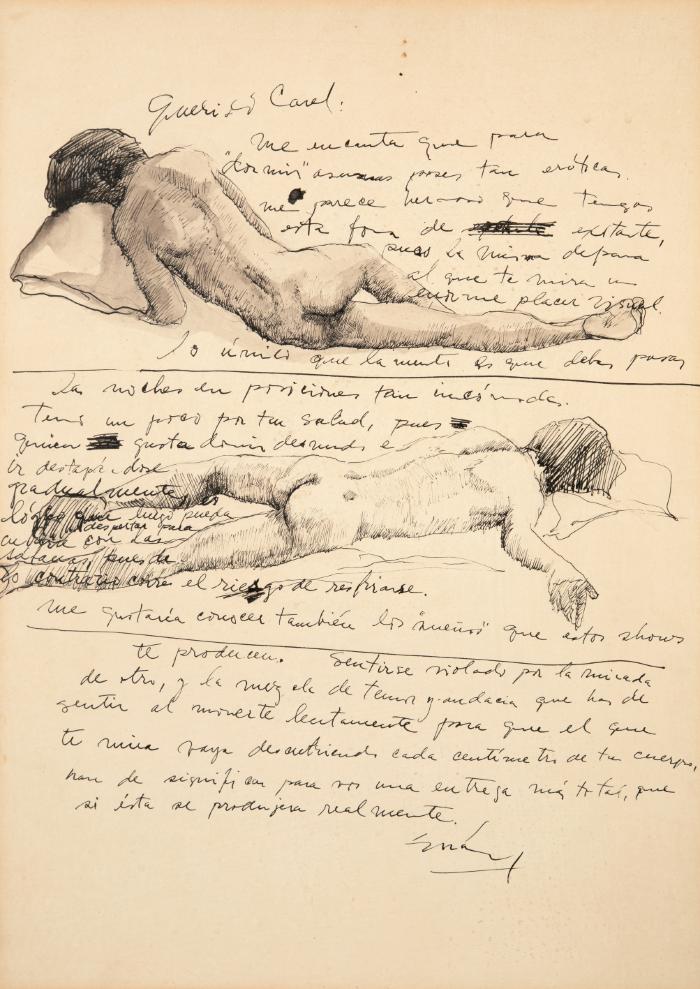 Querido Carel:
Me encanta que para
"dormir" asumas poses tan eróticas.
me parece hermoso que tengas
esta forma de excitarte,
pues la misma depara
al que te mira un
enorme placer visual.
lo único que lamento es que debas pasar
las noches en posiciones tan incómodas.
Temo un poco por tu salud, pues
quien gusta dormir desnudo e
ir destapándose
gradualmente, es
lógico que luego pueda
despertar para
cubrirse con las
sabanas, pues de
lo contrario corre el riesgo de resfriarse.
me gustaría conocer también los "sueños" que estos shows
te producen. Sentirse violado por la mirada
de otro, y la mezcla de temor y audacia que has de
sentir al moverte lentamente para que el que
te mira vaya descubriendo cada centímetro de tu cuerpo,
han de significar para vos una entrega más total, que
si ésta se produjera realmente.